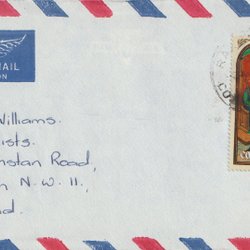 MAIL
Williams.
ists.
nstan Road,
n N.W. 11,
nd.
CO